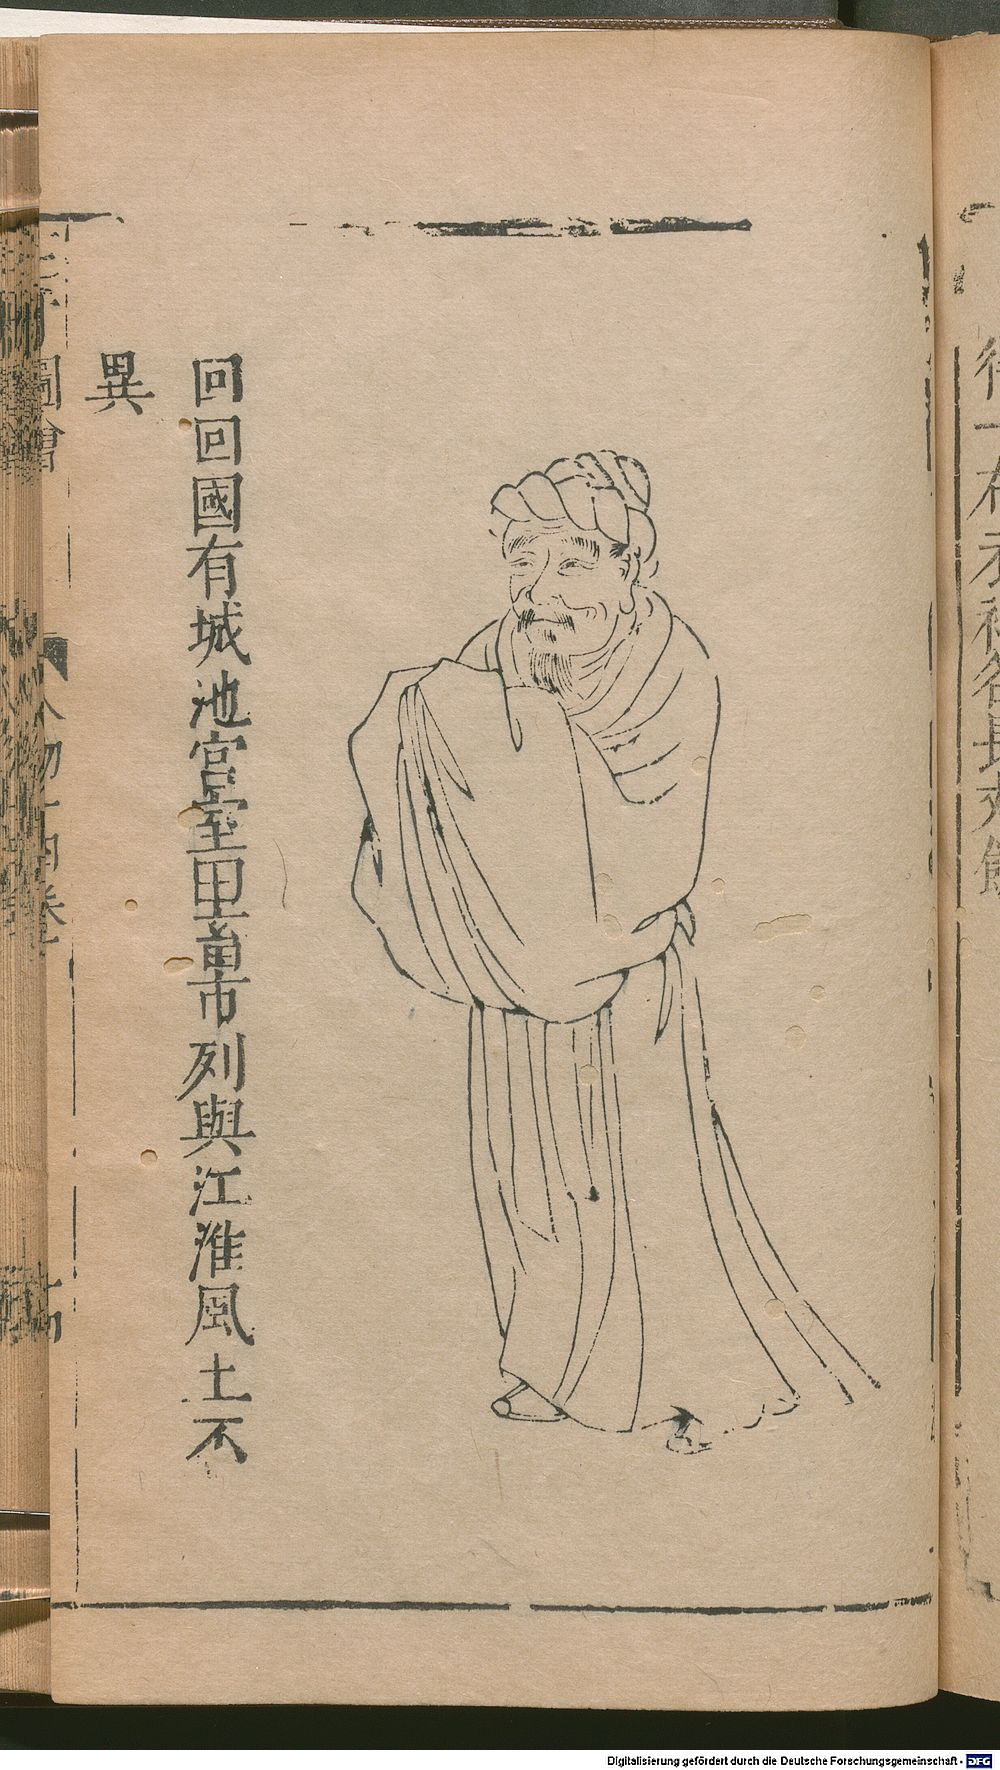 回回國有城池宮室田畜市列與江淮風土不
異
圖會
人物十四卷
Digitalisierung gefördert durch die Deutsche Forschungsgemeinschaft - DFG